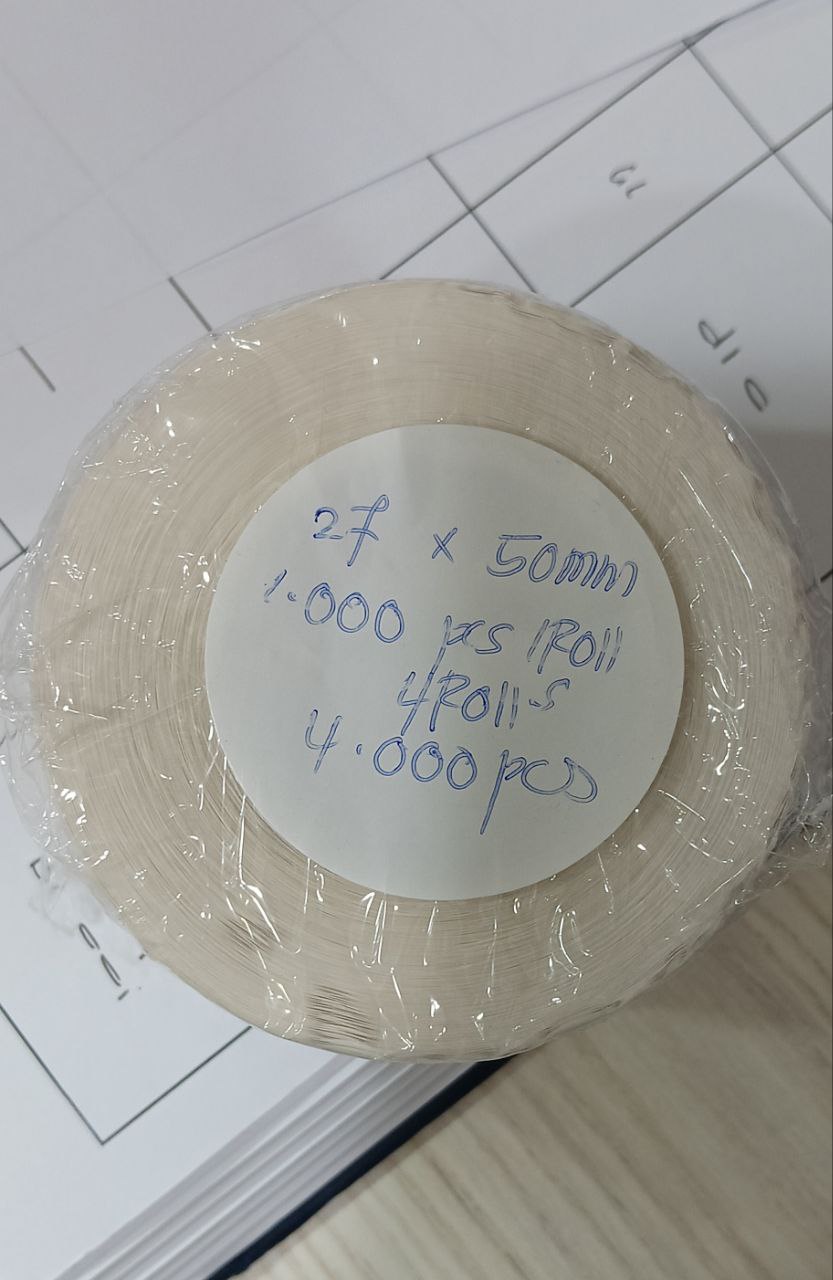 27 x 50mm
1.000 pcs /Roll
4Rolls
4.000 pcs